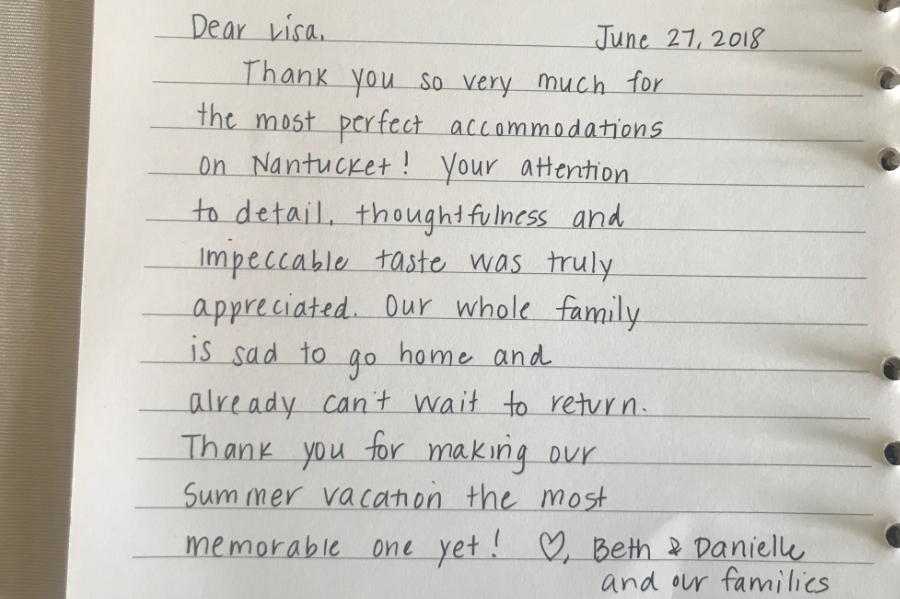 Dear Lisa, June 27, 2018
Thank you so very much for
the most perfect accommodations
on Nantucket! Your attention
to detail, thoughtfulness and
impeccable taste was truly
appreciated. Our whole family
is sad to go home and
already can't wait to return.
Thank you for making our
summer vacation the most
memorable one yet! ♡, Beth & Danielle
and our families